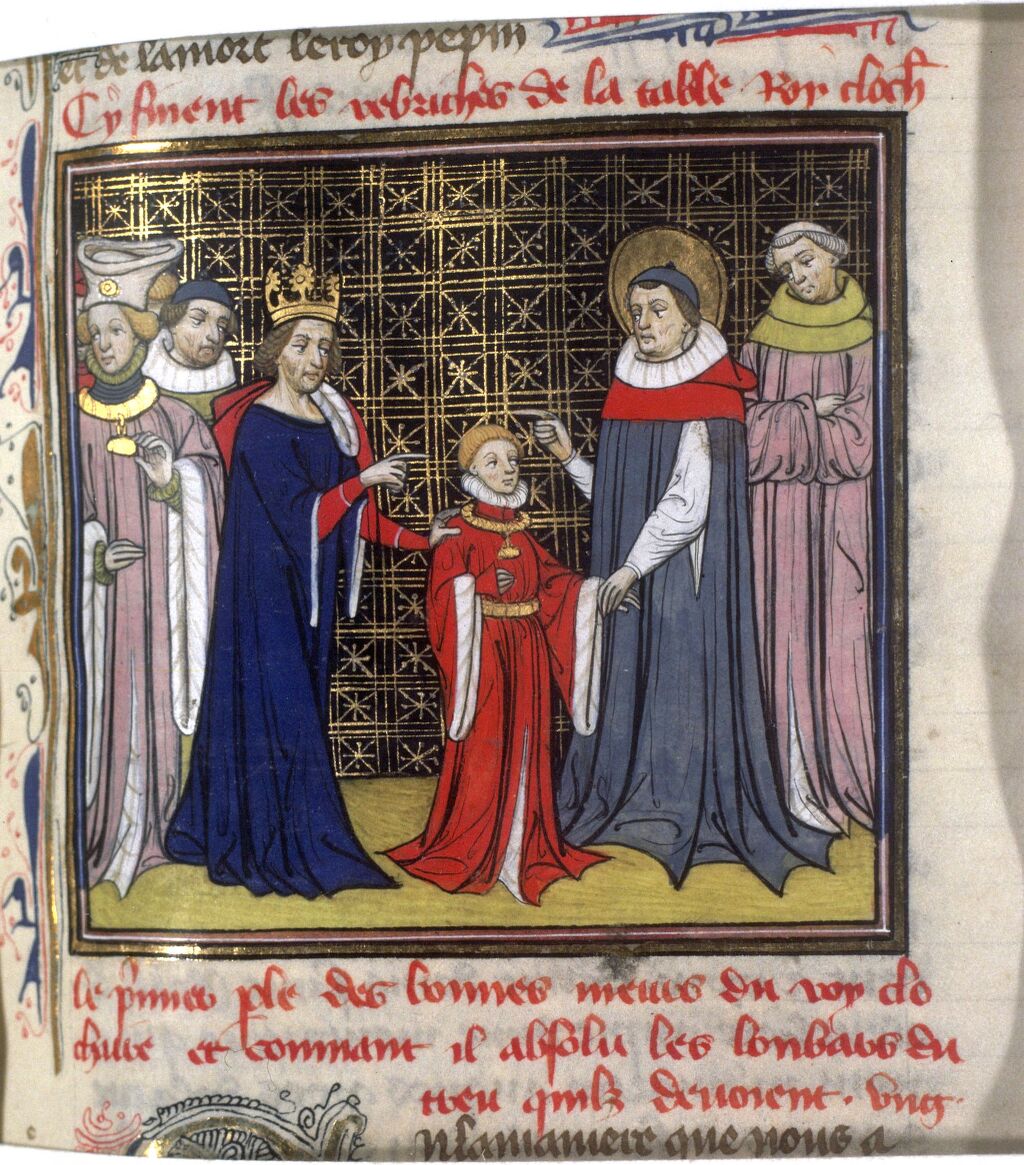 et de lamort leroy pepin
Cy finent les rebriches de la table Roy cloth
le p̃mier ꝑle des bonnes meurs du roy clo
thaire et comment il absolu les lonbars du
treu quilz devoient. Ung
N lamaniere que nous a